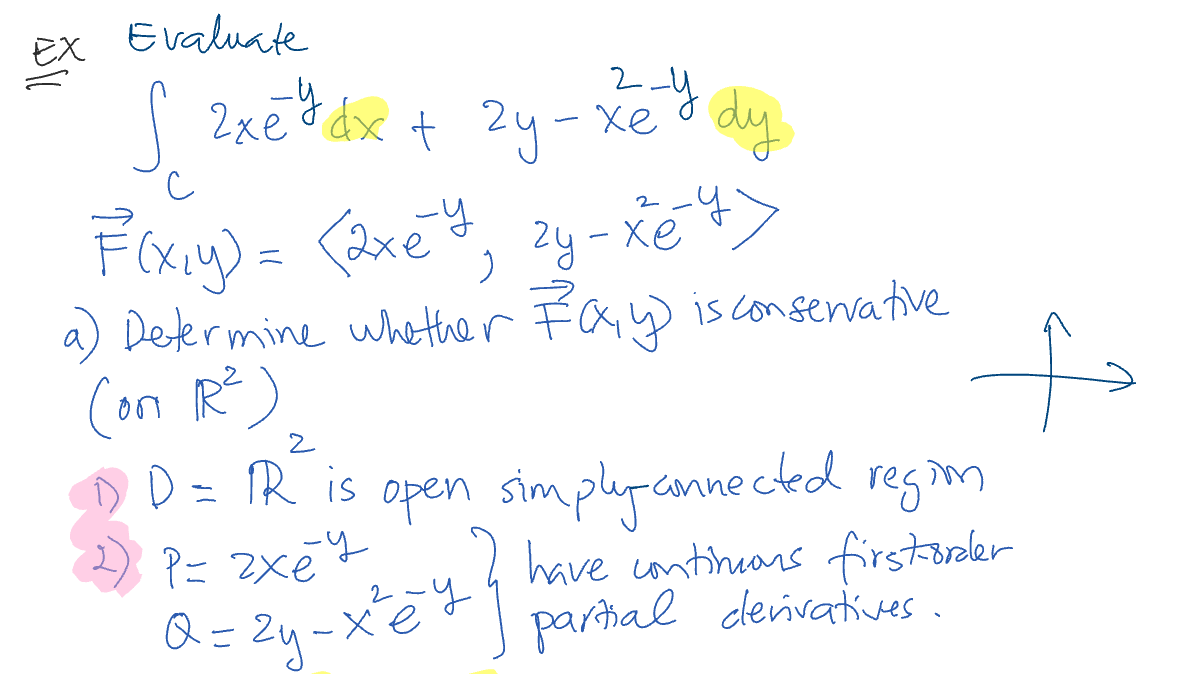 EX Evaluate
∫_C 2xe^{-y} dx + 2y - x^2e^{-y} dy
F⃗(x,y) = ⟨2xe^{-y}, 2y - x^2e^{-y}⟩
a) Determine whether F⃗(x,y) is conservative
(on ℝ^2)
1) D = ℝ^2 is open simply-connected region
2) P = 2xe^{-y} } have continuous first-order
Q = 2y - x^2e^{-y} partial derivatives.